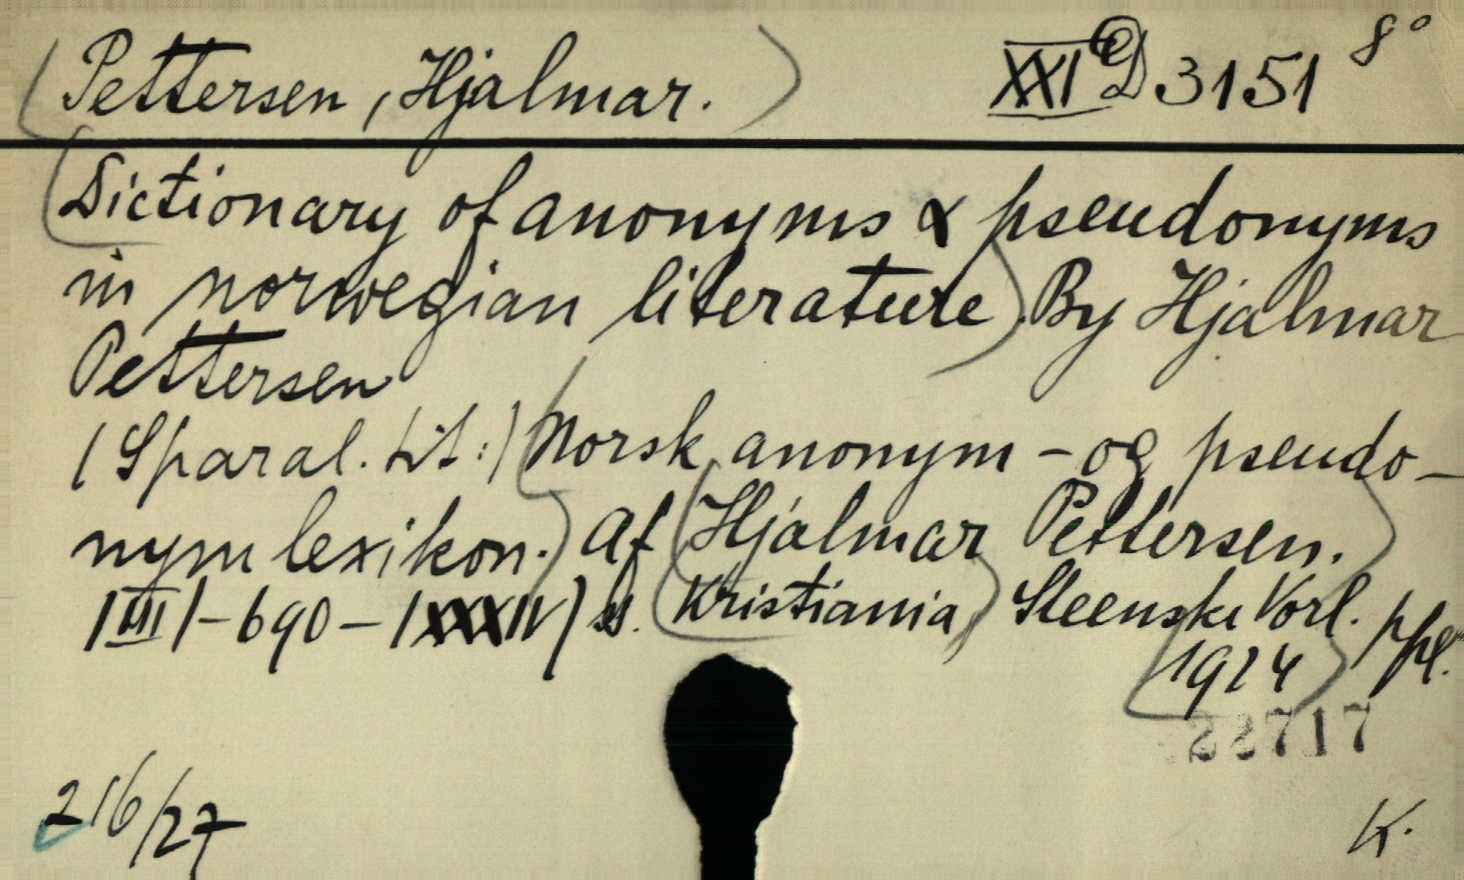 (Pettersen, Hjalmar.) XXI D 3151 8°
(Dictionary of anonyms & pseudonyms
in norwegian literature). By Hjalmar
Pettersen
(Sparal. tit:) (Norsk anonym - og pseudo-
nymlexikon.) Af (Hjalmar Pettersen.)
(III)-690-(XXXIV) s. (Kristiania,) Steenske Forl.
(1924)
22717
216/27
K.